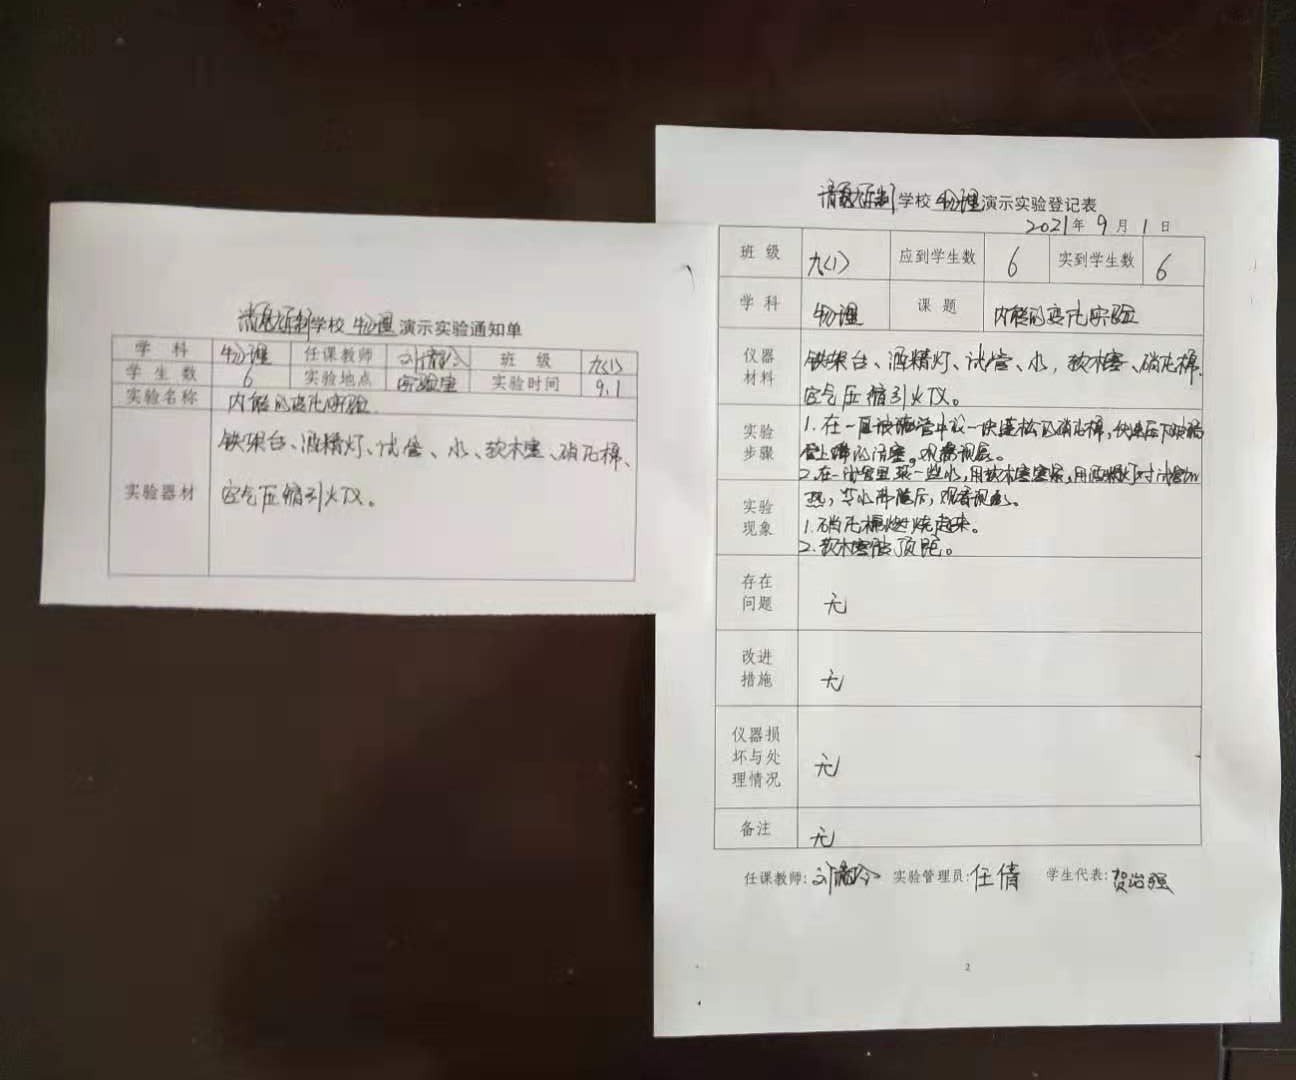 学校 物理 演示实验通知单
学科 物理 任课教师 班级 九(1)
学生数 6 实验地点 实验室 实验时间 9.1
实验名称 内能的变化实验
实验器材 铁架台、酒精灯、试管、水、软木塞、硝化棉、
空气压缩引火仪。
学校 物理 演示实验登记表
2021年 9月 1日
班级 九(1) 应到学生数 6 实到学生数 6
学科 物理 课题 内能的变化实验
仪器材料 铁架台、酒精灯、试管、水,软木塞、硝化棉、
空气压缩引火仪。
实验步骤 1.在一 玻璃管中放一块蓬松的硝化棉,快速压下玻璃
管上端的活塞。观察现象。
2.在一试管里装一些水,用软木塞塞紧,用酒精灯对试管加
热,等水沸腾后,观看现象。
实验现象 1.硝化棉燃烧起来。
2.软木塞被顶起。
存在问题 无
改进措施 无
仪器损坏与处理情况 无
备注 无
任课教师: 实验管理员:任倩 学生代表:贺治强
2